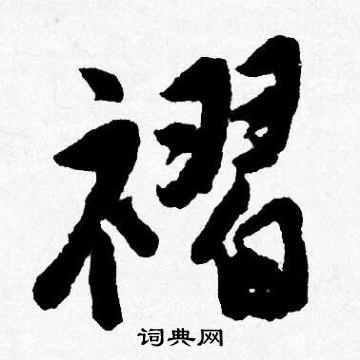 褶
词典网